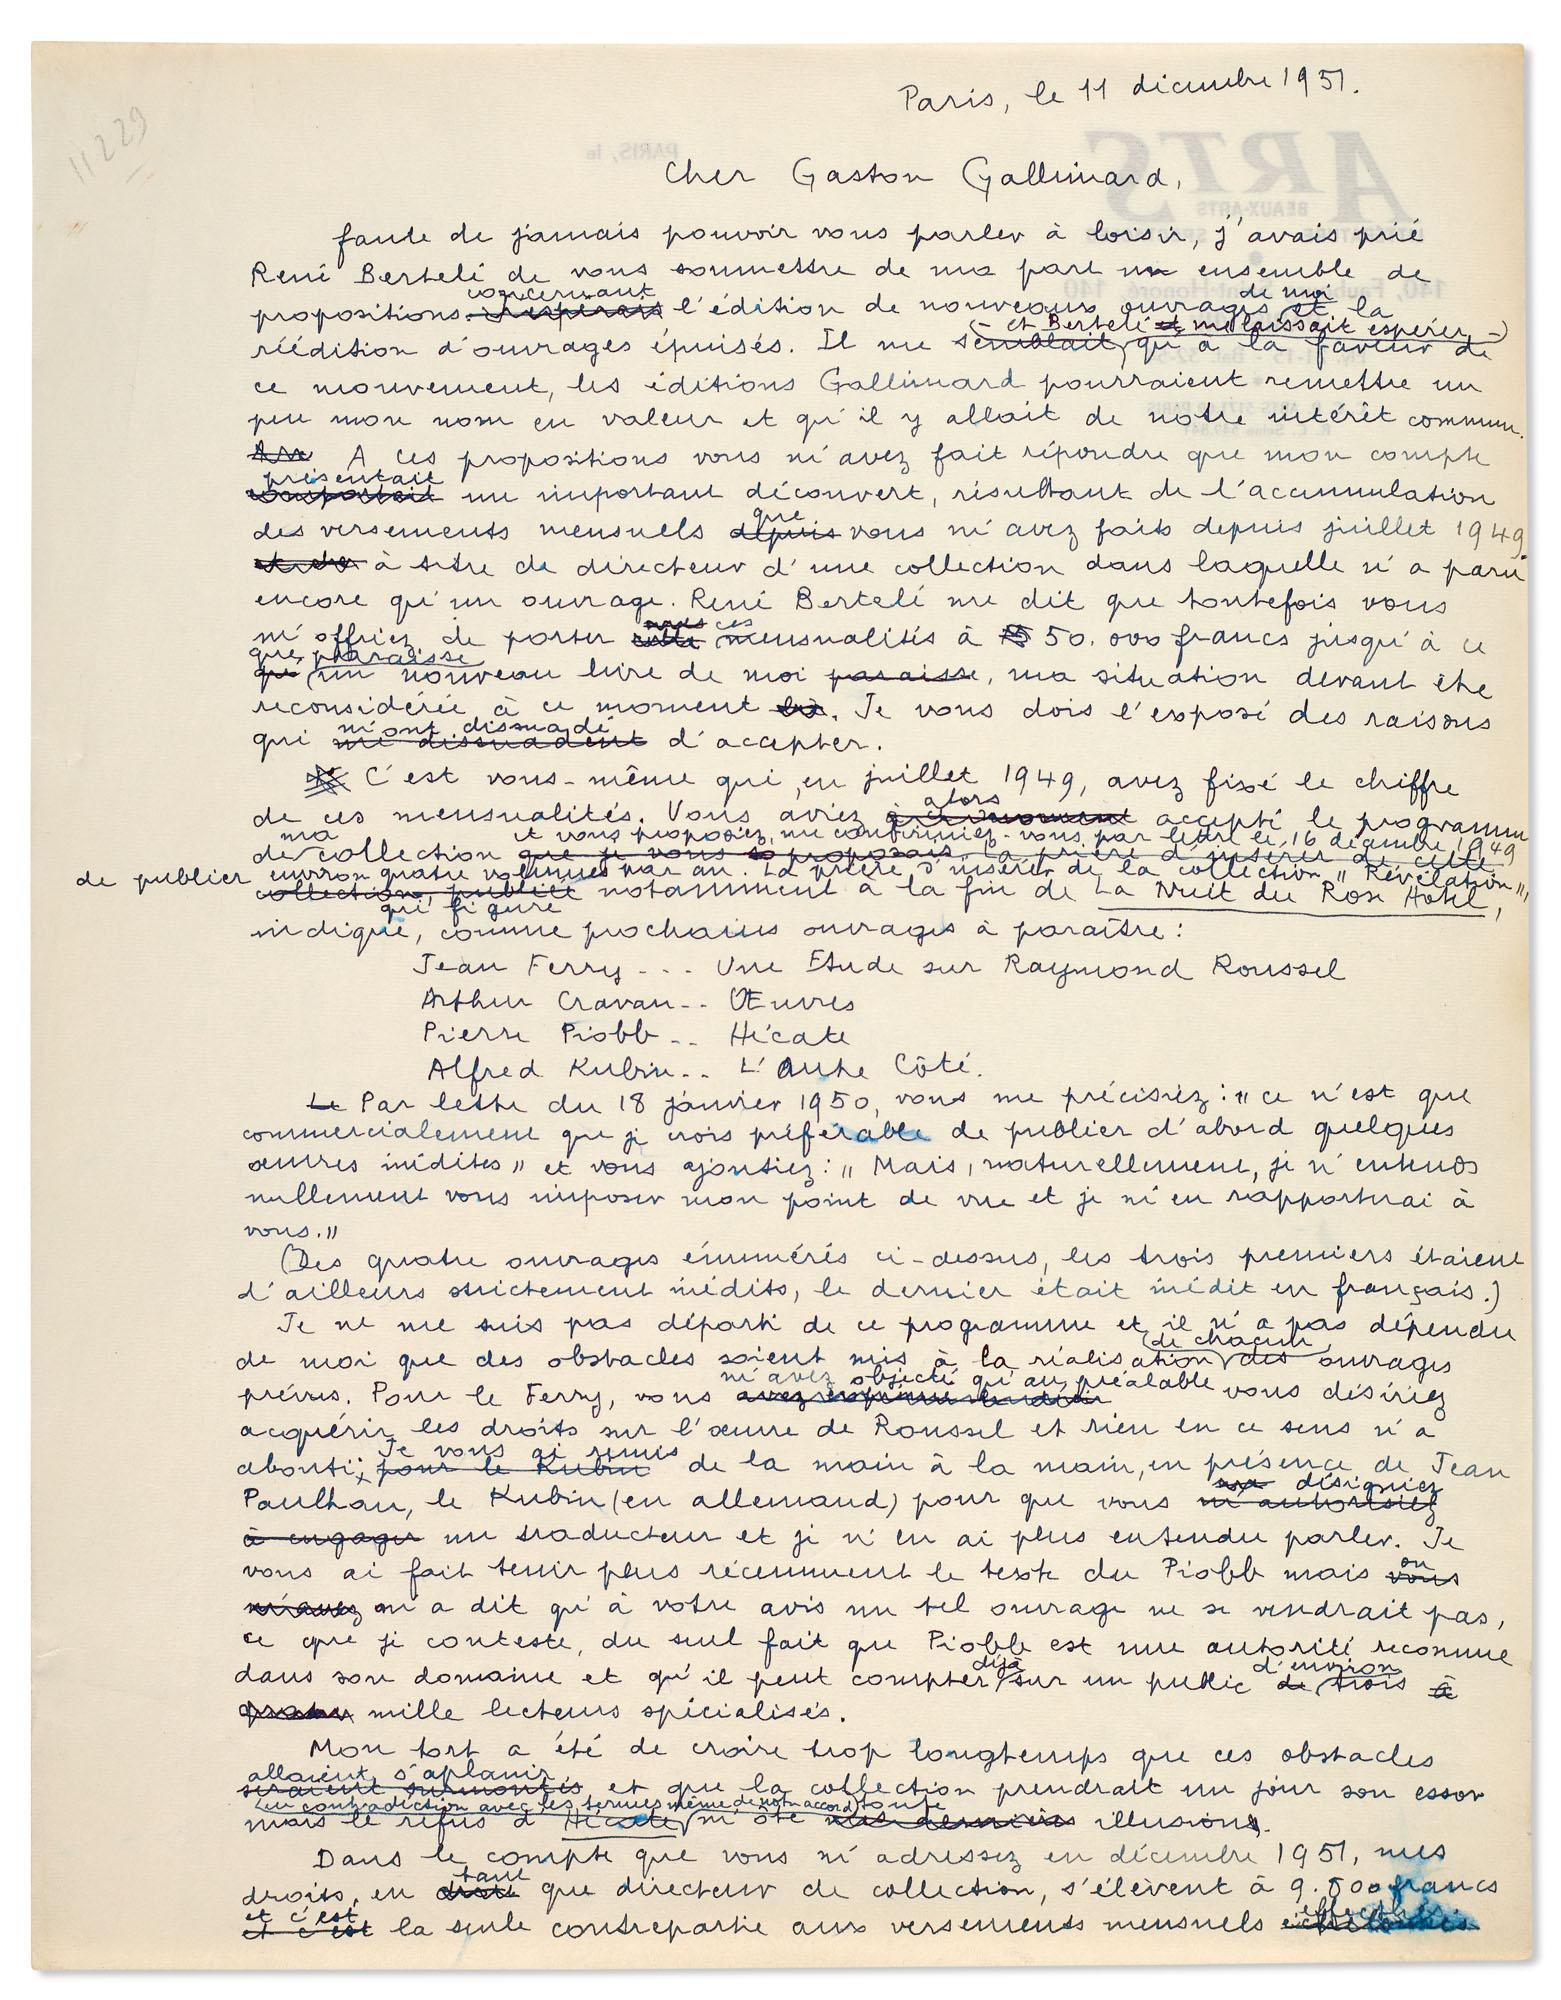 11229
Paris, le 11 décembre 1951.
ARTS
PARIS, le
BEAUX-ARTS
Cher Gaston Gallimard,
faute de jamais pouvoir vous parler à loisir, j'avais prié
René Bertelé de vous soumettre de ma part un ensemble de
concernant de moi
propositions. J'espérais l'édition de nouveaux ouvrages et la
(- et Bertelé et me laissait espérer -)
réédition d'ouvrages épuisés. Il me semblait, qu'à la faveur de
ce mouvement, les éditions Gallimard pourraient remettre un
peu mon nom en valeur et qu'il y allait de notre intérêt commun.
A ces propositions vous m'avez fait répondre que mon compte
présentait
comportait un important découvert, résultant de l'accumulation
que
des versements mensuels depuis vous m'avez faits depuis juillet 1949
à titre de directeur d'une collection dans laquelle n'a paru
encore qu'un ouvrage. René Bertelé me dit que toutefois vous
ces
m'offriez de porter mensualités à 50.000 francs jusqu'à ce
que paraisse
que un nouveau livre de moi paraisse, ma situation devant être
reconsidérée à ce moment là. Je vous dois l'exposé des raisons
m'ont dissuadé
qui me dissuadent d'accepter.
C'est vous-même qui, en juillet 1949, avez fixé le chiffre
alors
de ces mensualités. Vous aviez à ce moment accepté le programme
ma et vous proposiez, me confirmiez-vous par lettre le 16 décembre 1949
de collection que je vous proposais. La prière d'insérer de cette
de publier environ quatre volumes par an. La prière d'insérer de la collection "Révélation",
collection, publiée notamment à la fin de La Nuit du Rose Hôtel,
qui figure
indique, comme prochains ouvrages à paraître :
Jean Ferry... Une Etude sur Raymond Roussel
Arthur Cravan.. Œuvres
Pierre Piobb.. Hécate
Alfred Kubin.. L'Autre Côté.
Le Par lettre du 18 janvier 1950, vous me précisiez : "ce n'est que
commercialement que je crois préférable de publier d'abord quelques
œuvres inédites" et vous ajoutiez : "Mais, naturellement, je n'entends
nullement vous imposer mon point de vue et je m'en rapporterai à
vous."
(Des quatre ouvrages énumérés ci-dessus, les trois premiers étaient
d'ailleurs strictement inédits, le dernier était inédit en français.)
Je ne me suis pas départi de ce programme et il n'a pas dépendu
de chacun
de moi que des obstacles soient mis à la réalisation des ouvrages
m'avez objecté qu'au préalable
prévus. Pour le Ferry, vous avez exprimé le désir vous désiriez
acquérir les droits sur l'œuvre de Roussel et rien en ce sens n'a
Je vous ai remis
abouti ; pour le Kubin de la main à la main, en présence de Jean
désigniez
Paulhan, le Kubin (en allemand) pour que vous m'autorisiez
à engager un traducteur et je n'en ai plus entendu parler. Je
on
vous ai fait tenir plus récemment le texte du Piobb mais vous
m'avez m'a dit qu'à votre avis un tel ouvrage ne se vendrait pas,
ce que je conteste, du seul fait que Piobb est une autorité reconnue
déjà d'environ
dans son domaine et qu'il peut compter sur un public de trois à
quatre mille lecteurs spécialisés.
Mon tort a été de croire trop longtemps que ces obstacles
allaient s'aplanir
seraient surmontés et que la collection prendrait un jour son essor
(en contradiction avec les termes même de notre accord) toute
mais le refus d'Hécate m'ôte mes dernières illusions.
Dans le compte que vous m'adressez en décembre 1951, mes
tant
droits, en que directeur de collection, s'élèvent à 9.800 francs
et c'est
et c'est la seule contrepartie aux versements mensuels